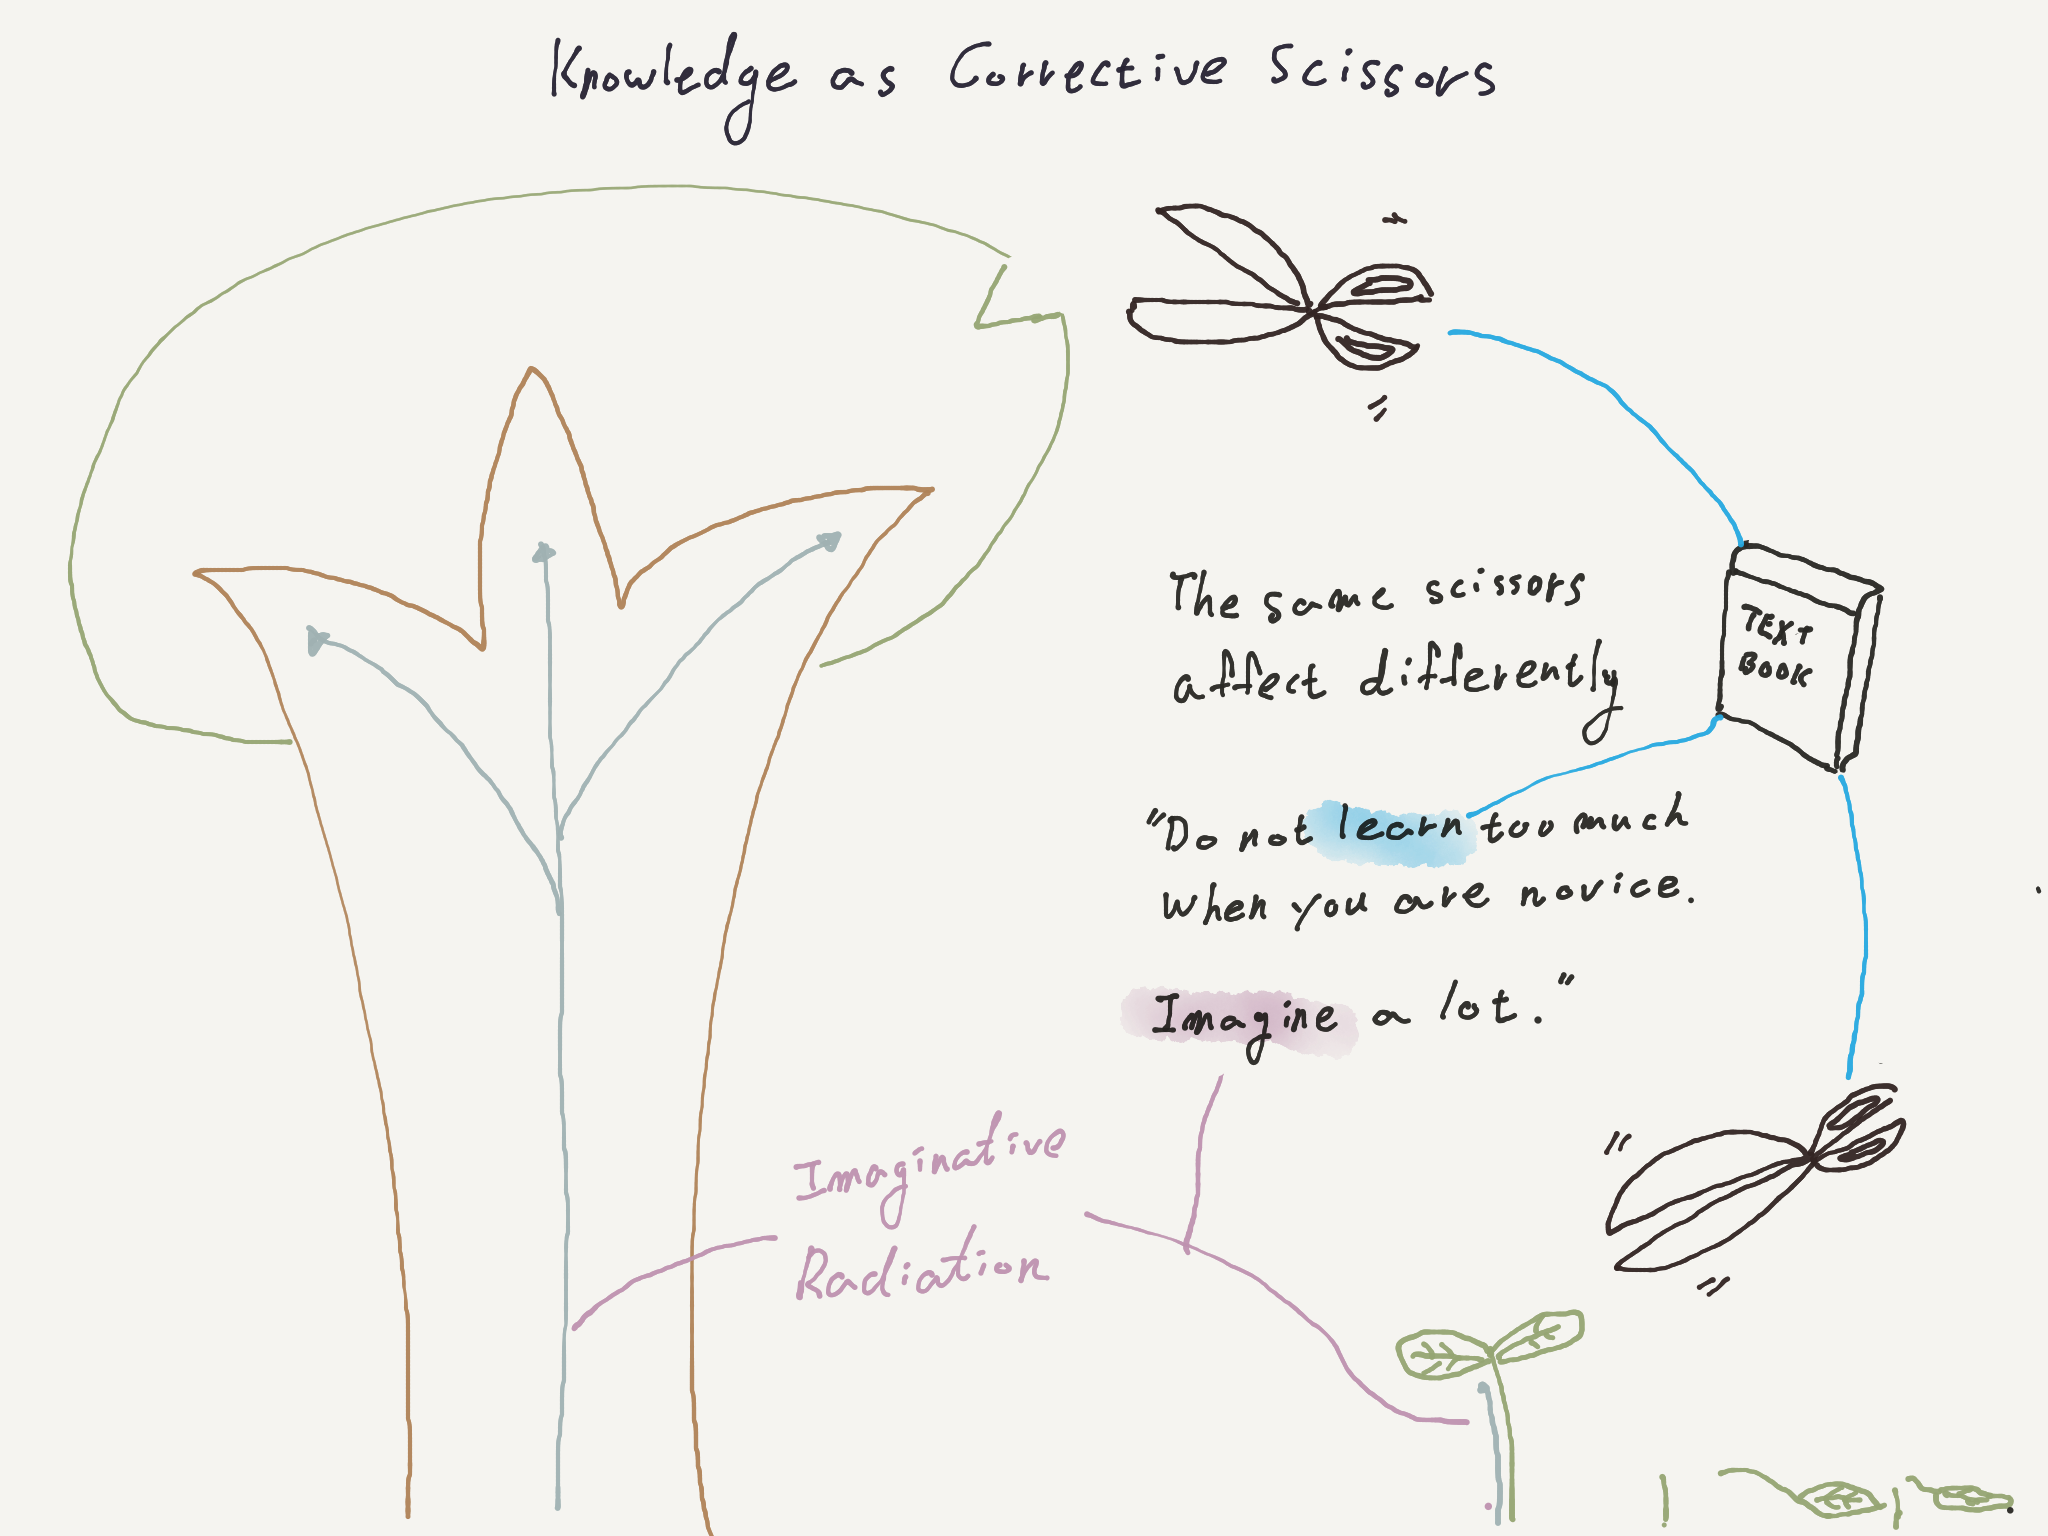 Knowledge as Corrective Scissors
The same scissors
affect differently
TEXT
BOOK
"Do not learn too much
when you are novice.
Imagine a lot."
Imaginative
Radiation